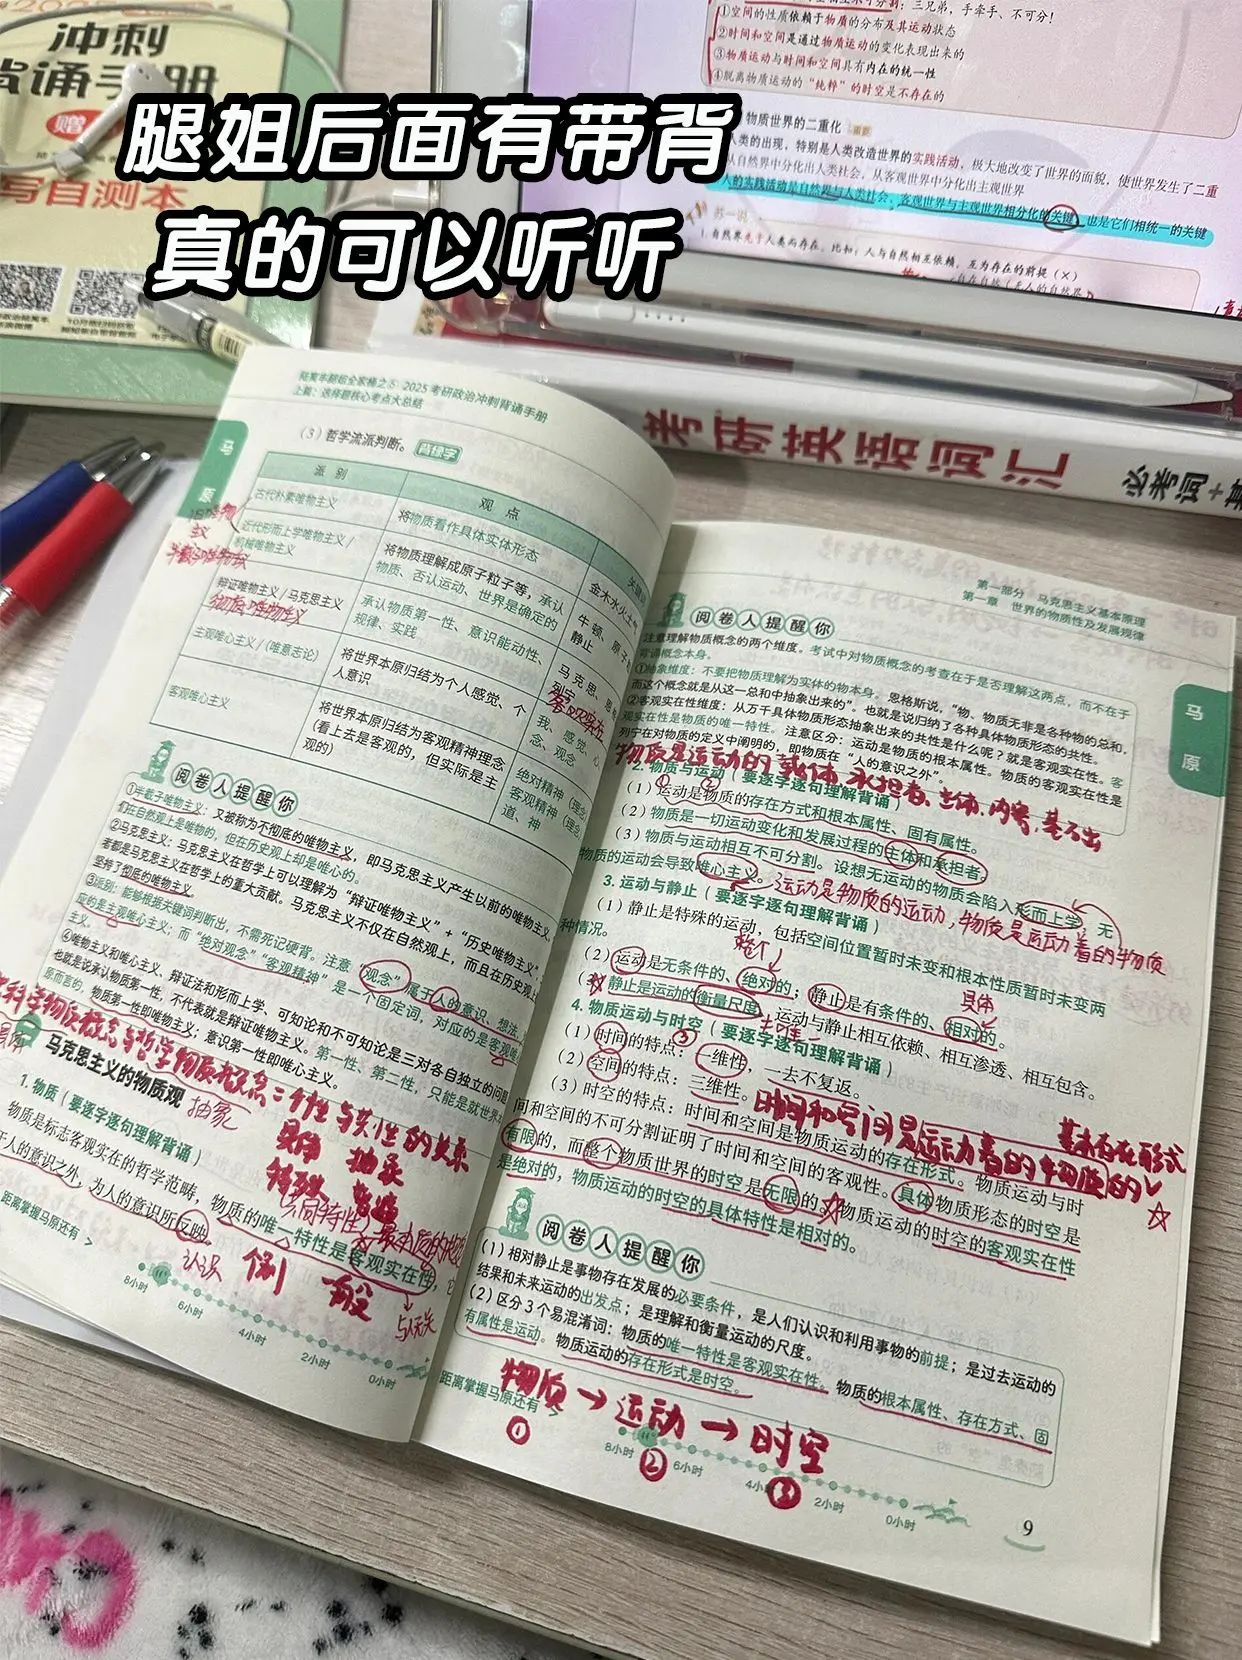 冲刺
背诵手册
写自测本
腿姐后面有带背
真的可以听听
三兄弟，手牵手、不可分！
①空间的性质依赖于物质的分布及其运动状态
②时间和空间是通过物质运动的变化表现出来的
③物质运动与时间和空间具有内在的统一性
④脱离物质运动的“纯粹”的时空是不存在的
物质世界的二重化
人类的出现，特别是人类改造世界的实践活动，极大地改变了世界的面貌，使世界发生了二重
从自然界中分化出人类社会，从客观世界中分化出主观世界
人的实践活动是自然界与人类社会、客观世界与主观世界相分化的关键，也是它们相统一的关键
苏一说
1.自然界先于人类而存在。比如：人与自然相互依赖，互为存在的前提（×）
考研英语词汇
必考词+基
陆寓丰腿姐全家桶之⑤ 2025考研政治冲刺背诵手册
上篇：选择题核心考点大总结
马原
（3）哲学流派判断。 背绿字
派 别
观 点
古代朴素唯物主义
将物质看作具体实体形态
金木水火土
近代形而上学唯物主义/
机械唯物主义
将物质理解成原子粒子等，承认
物质、否认运动、世界是确定的
牛顿、原子
静止
半截子唯物主义
辩证唯物主义/马克思主义
彻底唯物主义
承认物质第一性、意识能动性、
规律、实践
马克思、恩格
列宁
客观实在
主观唯心主义/（唯意志论）
将世界本原归结为个人感觉、个
人意识
我、感觉、心
念、观念
客观唯心主义
将世界本原归结为客观精神理念
（看上去是客观的，但实际是主
观的）
绝对精神
客观精神
道、神
阅卷人提醒你
①半截子唯物主义：又被称为不彻底的唯物主义，即马克思主义产生以前的唯物主义，
们在自然观上是唯物的，但在历史观上却是唯心的。
②马克思主义：马克思主义在哲学上可以理解为“辩证唯物主义”+“历史唯物主义”，
者都是马克思主义在哲学上的重大贡献。马克思主义不仅在自然观上，而且在历史观上
坚持了彻底的唯物主义。
③派别：能够根据关键词判断出，不需死记硬背。注意“观念”属于人的意识、想法，
应的是主观唯心主义；而“绝对观念”“客观精神”是一个固定词，对应的是客观唯
主义。
④唯物主义和唯心主义、辩证法和形而上学、可知论和不可知论是三对各自独立的问题
也就是说承认物质第一性，不代表就是辩证唯物主义。第一性、第二性，只能是就世界
原而言的，物质第一性即唯物主义；意识第一性即唯心主义。
科学物质概念与哲学物质概念=个性与共性的关系
马克思主义的物质观
抽象
具体 抽象
特殊 普遍
1. 物质（要逐字逐句理解背诵）
共同特性
物质是标志客观实在的哲学范畴，物质的唯一特性是客观实在性，
于人的意识之外，为人的意识所反映
认识
个别 一般
与人无关
距离掌握马原还有 >
8小时
6小时
4小时
2小时
0小时
第一部分 马克思主义基本原理
第一章 世界的物质性及发展规律
马原
阅卷人提醒你
注意理解物质概念的两个维度。考试中对物质概念的考查在于是否理解这两点，而不在于
背诵概念本身。
①抽象维度：不要把物质理解为实体的物本身。恩格斯说，“物、物质无非是各种物的总和，
而这个概念就是从这一总和中抽象出来的”。也就是说归纳了各种具体物质形态的共性。
②客观实在性维度：从万千具体物质形态抽象出来的共性是什么呢？就是客观实在性。客
观实在性是物质的唯一特性。注意区分：运动是物质的根本属性。物质的客观实在性是
列宁在对物质的定义中阐明的，即物质在“人的意识之外”。
物质是运动的载体、承担者、主体、内容、基础
2. 物质与运动（要逐字逐句理解背诵）
（1）运动是物质的存在方式和根本属性、固有属性。
（2）物质是一切运动变化和发展过程的主体和承担者。
（3）物质与运动相互不可分割。设想无运动的物质会陷入形而上学，无
物质的运动会导致唯心主义。
运动是物质的运动，物质是运动着的物质
3. 运动与静止（要逐字逐句理解背诵）
（1）静止是特殊的运动，包括空间位置暂时未变和根本性质暂时未变两
种情况。
整个
具体
（2）运动是无条件的、绝对的；静止是有条件的、相对的。
静止是运动的衡量尺度，运动与静止相互依赖、相互渗透、相互包含。
4. 物质运动与时空（要逐字逐句理解背诵）
（1）时间的特点：一维性，一去不复返。
（2）空间的特点：三维性。
时间和空间是运动着的物质的
基本存在形式
（3）时空的特点：时间和空间是物质运动的存在形式。物质运动与时
间和空间的不可分割证明了时间和空间的客观性。具体物质形态的时空是
有限的，而整个物质世界的时空是无限的；物质运动的时空的客观实在性
是绝对的，物质运动的时空的具体特性是相对的。
阅卷人提醒你
（1）相对静止是事物存在发展的必要条件，是人们认识和利用事物的前提；是过去运动的
结果和未来运动的出发点；是理解和衡量运动的尺度。
（2）区分3个易混淆词：物质的唯一特性是客观实在性。物质的根本属性、存在方式、固
有属性是运动。物质运动的存在形式是时空。
物质→运动→时空
① ② ③
距离掌握马原还有 >
8小时
6小时
4小时
2小时
0小时
9